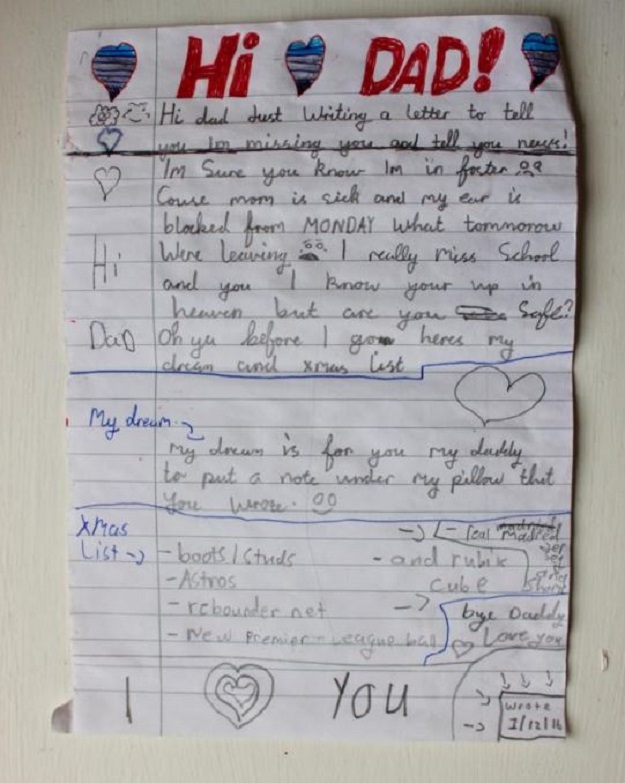 Hi DAD!
Hi dad Just Writing a letter to tell
you Im missing you and tell you news!
Im Sure you know Im in foster
Couse mom is sick and my ear is
blocked from MONDAY What tommorow
Were leaving I really miss School
and you I know your up in
heaven but are you Safe?
Oh ya before I go heres my
dream and xmas list
Hi
DaD
My dream
my dream is for you my daddy
to put a note under my pillow that
you wrote.
Xmas
List
- boots/studs
- Astros
- rebounder net
- New Premier-League ball
- real madrid
- and rubix
cube
bye Daddy
Love you
I YOU
wrote
1/12/16